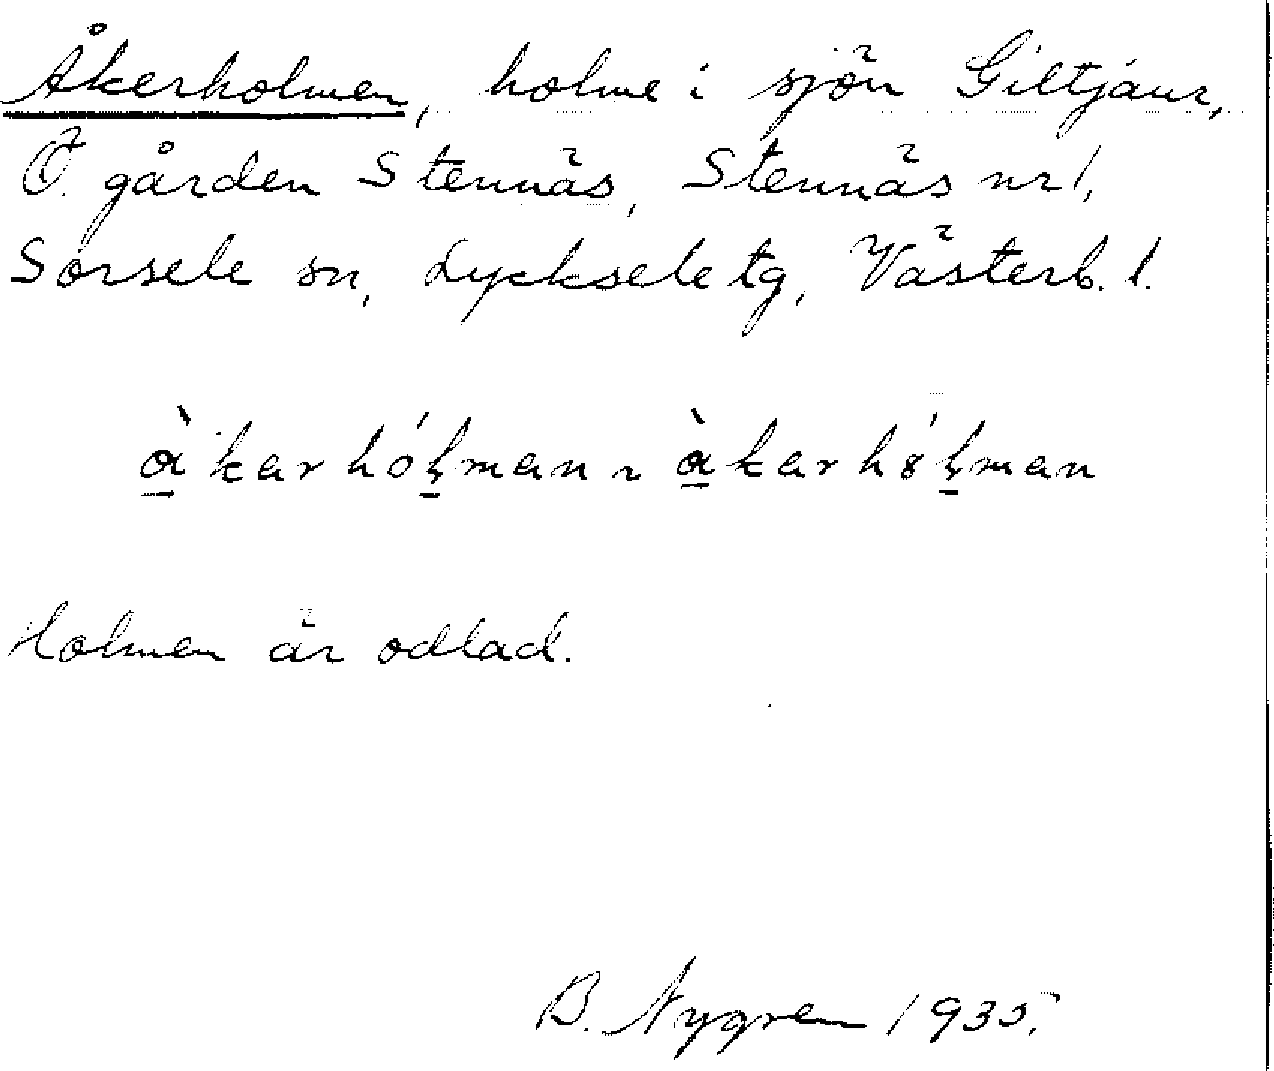 Åkerholmen, holme i sjön Giltjaur,
Ö. gården Stennäs, Stennäs nr 1,
Sorsele sn, Lycksele tg, Västerb. l.
ὰkarhóḷman ~ ὰkarh8́ḷman
Holmen är odlad.
B. Nygren 1935.